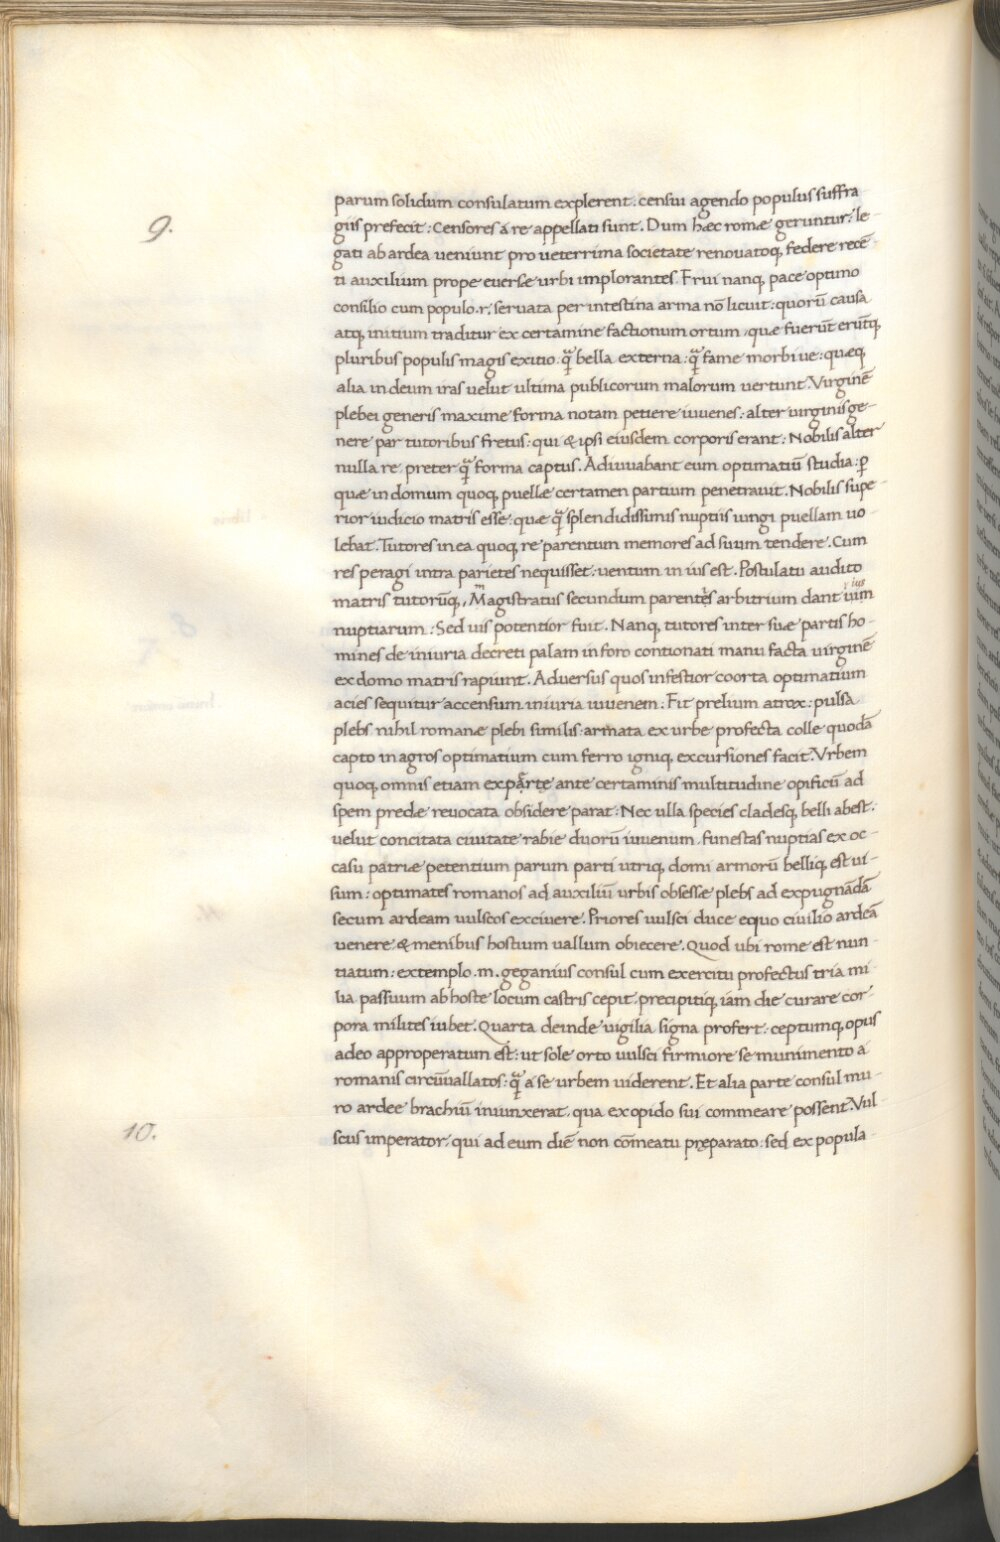 parum solidum consulatum explerent. censui agendo populus suffra-
9.
giis prefecit: Censores a re appellati sunt. Dum hæc romæ geruntur: le-
gati ab ardea ueniunt pro ueterrima societate renouatoq, federe recē-
ti auxilium prope euersæ urbi implorantes. Frui nanq, pace optimo
consilio cum populo .r. seruata per intestina arma nō licuit: quorū causa
atq, initium traditur ex certamine factionum ortum, quæ fuerūt erūtq,
pluribus populis magis exitio: q̄ bella externa: q̄ fame morbi ue: quæq,
alia in deum iras uelut ultima publicorum malorum uertunt. Virginē
plebei generis maxime forma notam petiere iuuenes: alter uirginis ge-
nere par tutoribus fretus: qui & ipsi eiusdem corporis erant: Nobilis alter
nulla re preter q̄ forma captus. Adiuuabant eum optimatiū studia: ꝑ
quæ in domum quoq, puellæ certamen partium penetrauit. Nobilis supe-
rior iudicio matris esse: quæ q̄ splendidissimis nuptiis iungi puellam uo-
lebat. Tutores in ea quoq, re partium memores ad suum tendere. Cum
res peragi intra parietes nequisset: uentum in ius est. Postulatu audito
matris tutorūq,, Magistratus secundum parentis arbitrium dant ius
nuptiarum: Sed uis potentior fuit. Nanq, tutores inter suæ partis ho-
mines de iniuria decreti palam in foro contionati manu facta uirginē
ex domo matris rapiunt. Aduersus quos infestior coorta optimatium
acies sequitur accensum iniuria iuuenem: Fit prelium atrox: pulsa
plebs nihil romanæ plebi similis: armata ex urbe profecta colle quodā
capto in agros optimatium cum ferro igniq, excursiones facit. Vrbem
quoq, omnis etiam expārte ante certaminis multitudine opificū ad
spem predæ reuocata obsidere parat: Nec ulla species cladesq, belli abest:
uelut concitata ciuitate rabie duorū iuuenum, funestas nuptias ex oc-
casu patriæ petentium parum parti utriq, domi armorū belliq, est ui-
sum: optimates romanos ad auxiliū urbis obsessæ plebs ad expugnādā
secum ardeam uulscos exciuere. Priores uulsci duce equo ciuilio ardeā
uenere & menibus hostium uallum obiecere. Quod ubi rome est nun-
tiatum: extemplo .m. geganius consul cum exercitu profectus tria mi-
lia passuum ab hoste locum castris cepit. precipitiq, iam die curare cor-
pora milites iubet. Quarta deinde uigilia signa profert: ceptumq, opus
adeo approperatum est: ut sole orto uulsci firmiore se munimento a
romanis circūuallatos: q̄ a se urbem uiderent. Et alia parte consul mu-
ro ardee brachiū iniunxerat, qua ex opido sui commeare possent. Vul-
10.
scus imperator, qui ad eum diē non cōmeatu pręparato: sed ex popula-